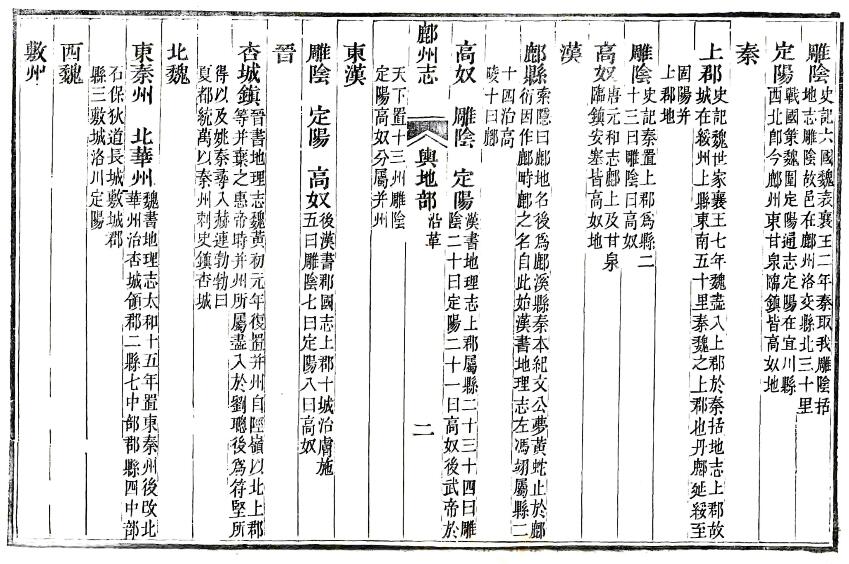 雕陰史記六國魏表襄王二年秦取我雕陰括
地志雕陰故邑在鄜州洛交縣北三十里
定陽戰國策魏圍定陽通志定陽在宜川縣
西北郎今鄜州東甘泉臨鎮皆高奴地
秦
上郡史記魏世家襄王七年魏盡入上郡於秦括地志上郡故
城在綏州上縣東南五十里秦魏之上郡地丹鄜延綏至
固陽并
上郡地
雕陰史記秦置上郡爲縣二
十三曰雕陰曰高奴
高奴唐元和志鄜上及甘泉
臨鎮安塞皆高奴地
漢
鄜縣索隱曰鄜地名後爲鄜溪縣秦本紀文公夢黃蛇止於鄜
衍因作鄜畤鄜之名自此始漢書地理志左馮翊屬縣二
十四治高
陵十曰鄜
高奴 雕陰 定陽漢書地理志上郡屬縣二十三十四曰雕
陰二十曰定陽二十一曰高奴後武帝於
鄜州志 輿地部 沿革 二
天下置十三州雕陰
定陽高奴分屬并州
東漢
雕陰 定陽 高奴後漢書郡國志上郡十城治膚施
五曰雕陰七曰定陽八曰高奴
晉
杏城鎮晉書地理志魏黃初元年復置并州自陘嶺以北上郡
等并棄之惠帝時并州所屬盡入於劉聰後爲苻堅所
得以及姚秦尋入赫連勃勃曰
夏都統萬以秦州刺史鎮杏城
北魏
東秦州 北華州魏書地理志太和十五年置東秦州後改北
華州治杏城領郡二縣七中部郡縣四中部
石保狄道長城敷城郡
縣三敷城洛川定陽
西魏
敷州